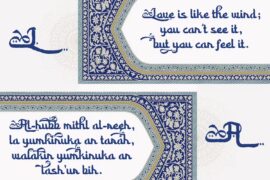 L...
Love is like the wind;
you can't see it,
but you can feel it.
Al-hubb mithl al-reeh,
la yumkinuka an tarah,
walakin yumkinuka an
tash'ur bih.
A...